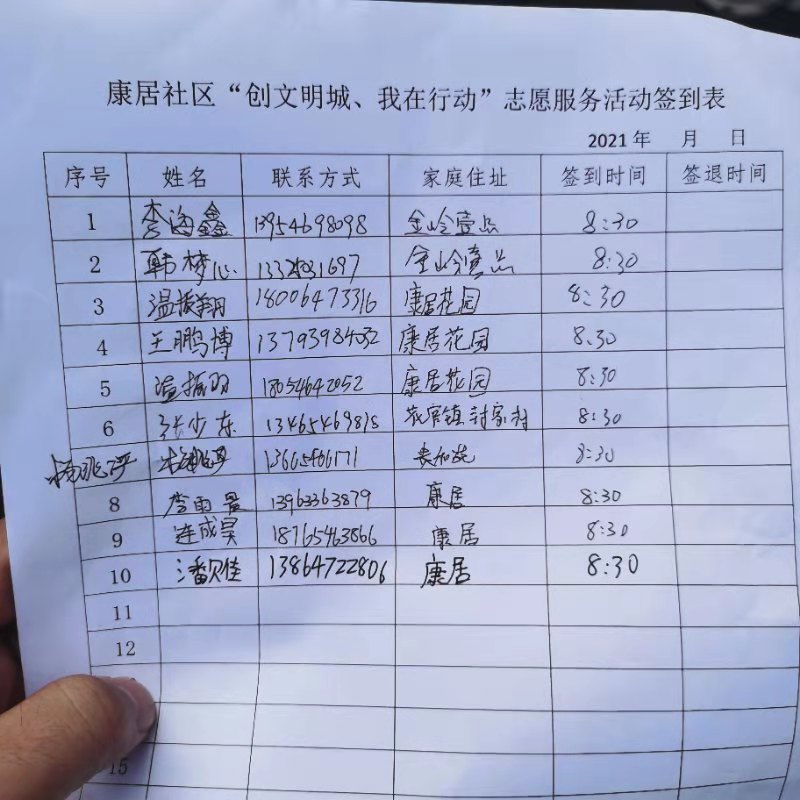 康居社区“创文明城、我在行动”志愿服务活动签到表
2021年 月 日
序号 姓名 联系方式 家庭住址 签到时间 签退时间
1 李海鑫 13954698098 金岭壹品 8:30
2 韩梦心 金岭壹品 8:30
3 温振翔 18006473316 康居花园 8:30
4 王鹏博 13793984032 康居花园 8:30
5 温振羽 18054642052 康居花园 8:30
6 张少东 13465469818 花官镇封家村 8:30
杨兆严 13665466171 8:30
8 李雨晨 13963363879 康居 8:30
9 连成昊 18765463866 康居 8:30
10 潘贝佳 13864722806 康居 8:30
11
12
15